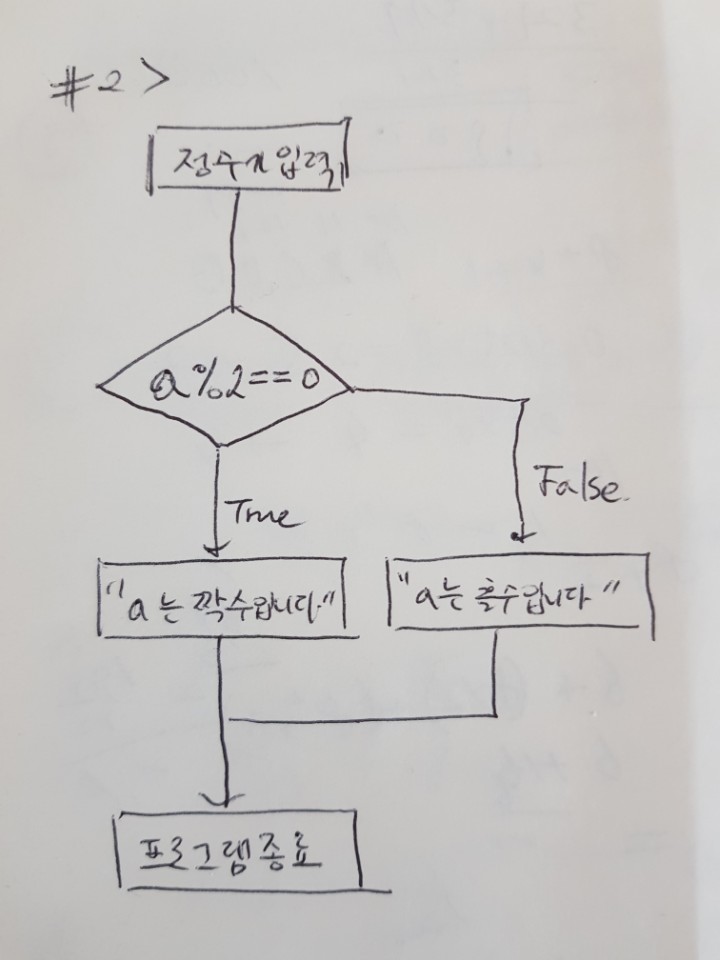 #2>
정수 입력
a%2==0
True
False.
"a는 짝수입니다."
"a는 홀수입니다"
프로그램종료